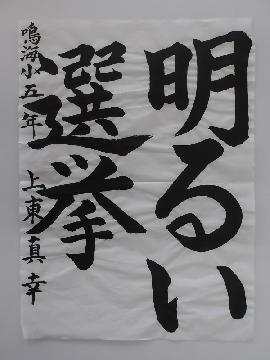 明るい
選挙
鳴海小五年 上東真幸